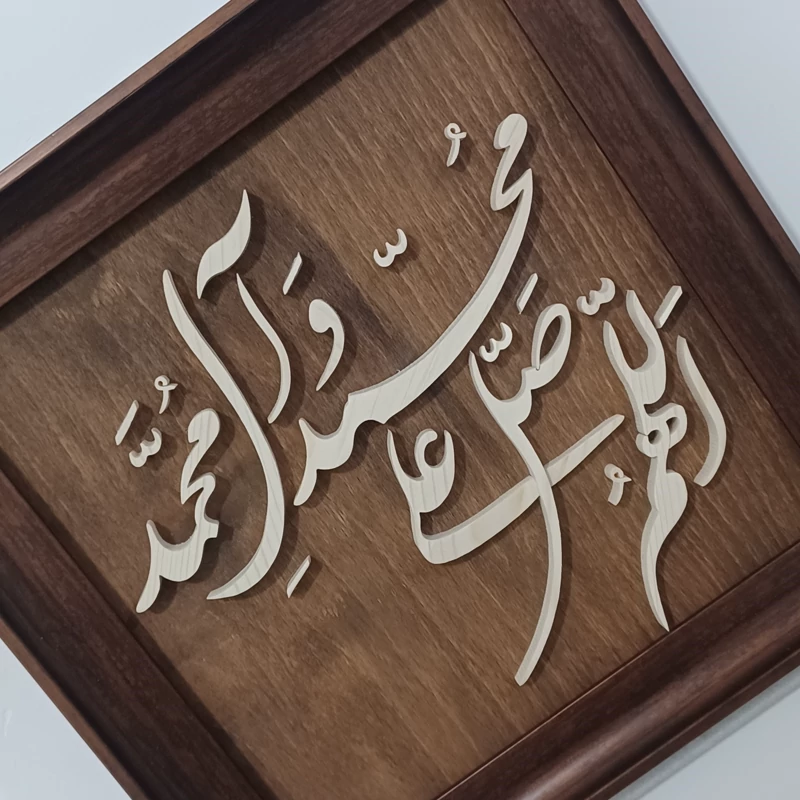 اَللّٰهُمَّ صَلِّ عَلی مُحَمَّد وَ آلِ مُحَمَّد